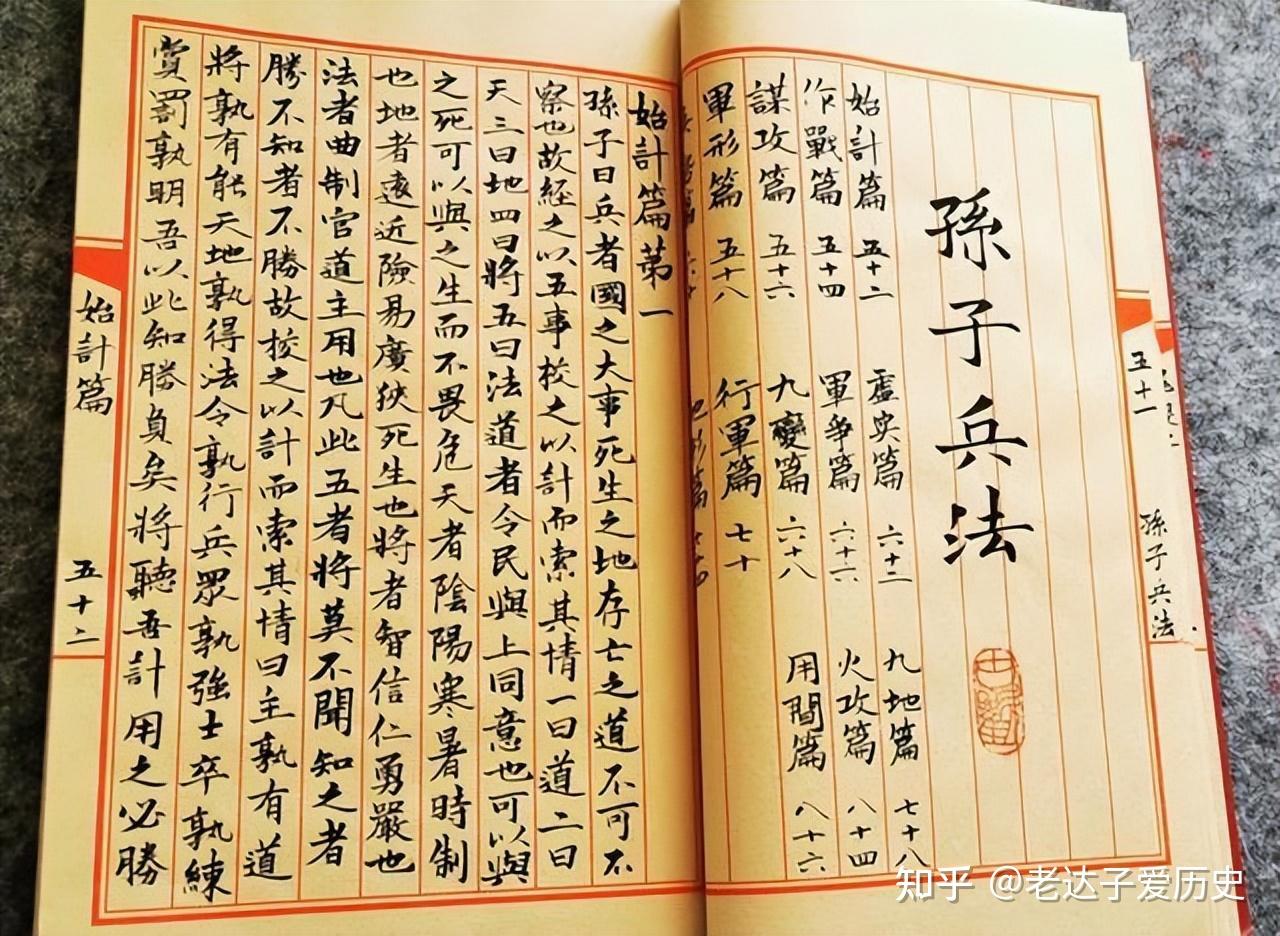 孫子兵法
五十一
孫子兵法
始計篇 五十二
作戰篇 五十四
謀攻篇 五十六
軍形篇 五十八
虛實篇 六十二
軍爭篇 六十六
九變篇 六十八
行軍篇 七十
九地篇 七十八
火攻篇 八十四
用間篇 八十六
始計篇第一
孫子曰兵者國之大事死生之地存亡之道不可不
察也故經之以五事校之以計而索其情一曰道二曰
天三曰地四曰將五曰法道者令民與上同意也可以與
之死可以與之生而不畏危天者陰陽寒暑時制
也地者遠近險易廣狹死生也將者智信仁勇嚴也
法者曲制官道主用也凡此五者將莫不聞知之者
勝不知者不勝故校之以計而索其情曰主孰有道
將孰有能天地孰得法令孰行兵眾孰強士卒孰練
賞罰孰明吾以此知勝負矣將聽吾計用之必勝
始計篇
五十二
知乎 @老达子爱历史